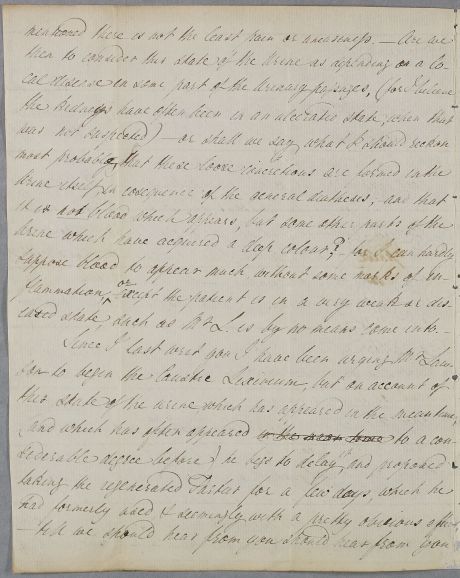 mentioned there is not the least pain or uneasiness. — Are we
then to consider this state of the Urine as depending on a lo-
cal disease in some part of the Urinary passages, (for I believe
the Kidneys have often been in an ulcerated state when that
was not suspected) — or shall we say what I should reckon
most probable, that these loose concretions are formed in the
Urine itself in consequence of the general diathesis, and that
it is not blood which appears, but some other parts of the
Urine which have acquired a deep colour? — for I can hardly
suppose blood to appear much without some marks of in-
flammation, or except the patient is in a very weak or dis-
eased state such as Mr L. is by no means come into. —
Since I last wrot you I have been urging Mr
to begin the Caustic Lixivium, but on account of
this state of the urine which has appeared in the mean time,
(and which has often appeared in the mean time to a con-
siderable degree before) he begs to delay, and proposed
taking the regenerated Tartar for a few days, which he
had formerly used & seemingly with a pretty obvious effect,
— till we should hear from you should hear from you